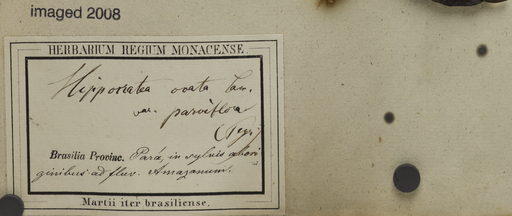 imaged 2008
HERBARIUM REGIUM MONACENSE.
Hippocratea ovata Lam.
var. parviflora
Brasilia Provinc. Pará, in sylvis abori
ginibus ad fluv. Amazonum.
Martii iter brasiliense.